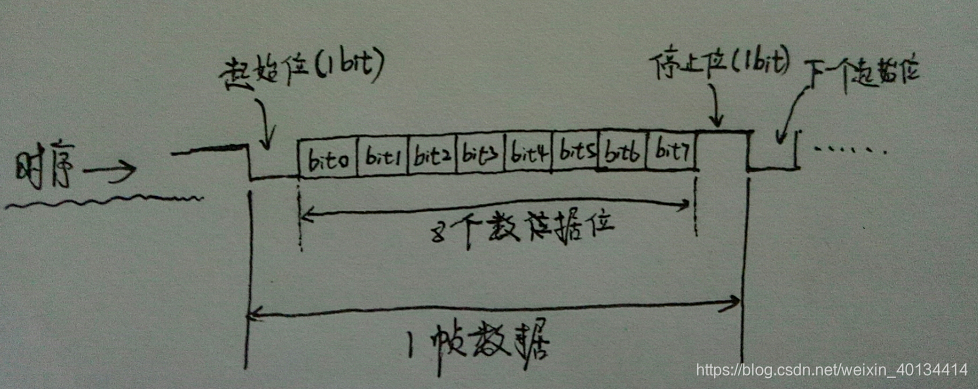 起始位(1bit)
停止位(1bit)
下一个起始位
时序
bit0 bit1 bit2 bit3 bit4 bit5 bit6 bit7
......
8个数据位
1帧数据
https://blog.csdn.net/weixin_40134414